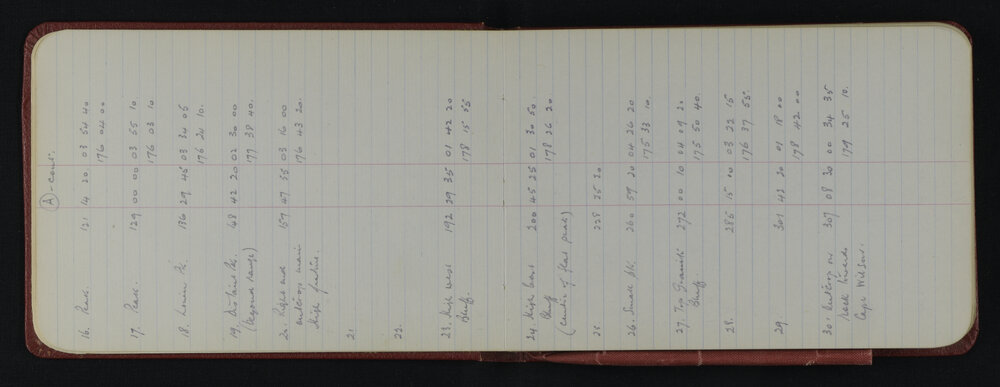 (A) - cont.
16. Peak. 121 14 20 03 54 40
176 04 00
17. Peak. 129 00 00 03 55 10
176 03 10
18. Pk. 136 29 45 03 34 05
176 24 10.
19. Distant Pk. 48 42 20 02 30 00
(beyond range) 177 38 40.
20. Right end 157 47 55 03 16 00
outcrop main 176 43 20.
high feature.
21.
22.
23. High west 192 29 35 01 42 20
Bluff. 178 15 55
24. High east 200 45 25 01 30 50.
Bluff 178 26 20
(centre of flat peak)
25 228 25 20
26. Small pk. 260 59 20 04 26 20
175 33 10.
27. Top Granite 272 00 10 04 09 20
Bluff. 175 50 40.
28. 286 15 00 03 22 15
176 37 55
29. 301 42 20 01 18 00
178 42 00
30. Outcrop on 307 08 20 00 34 35
rock towards 179 25 10.
Cape Wilson.